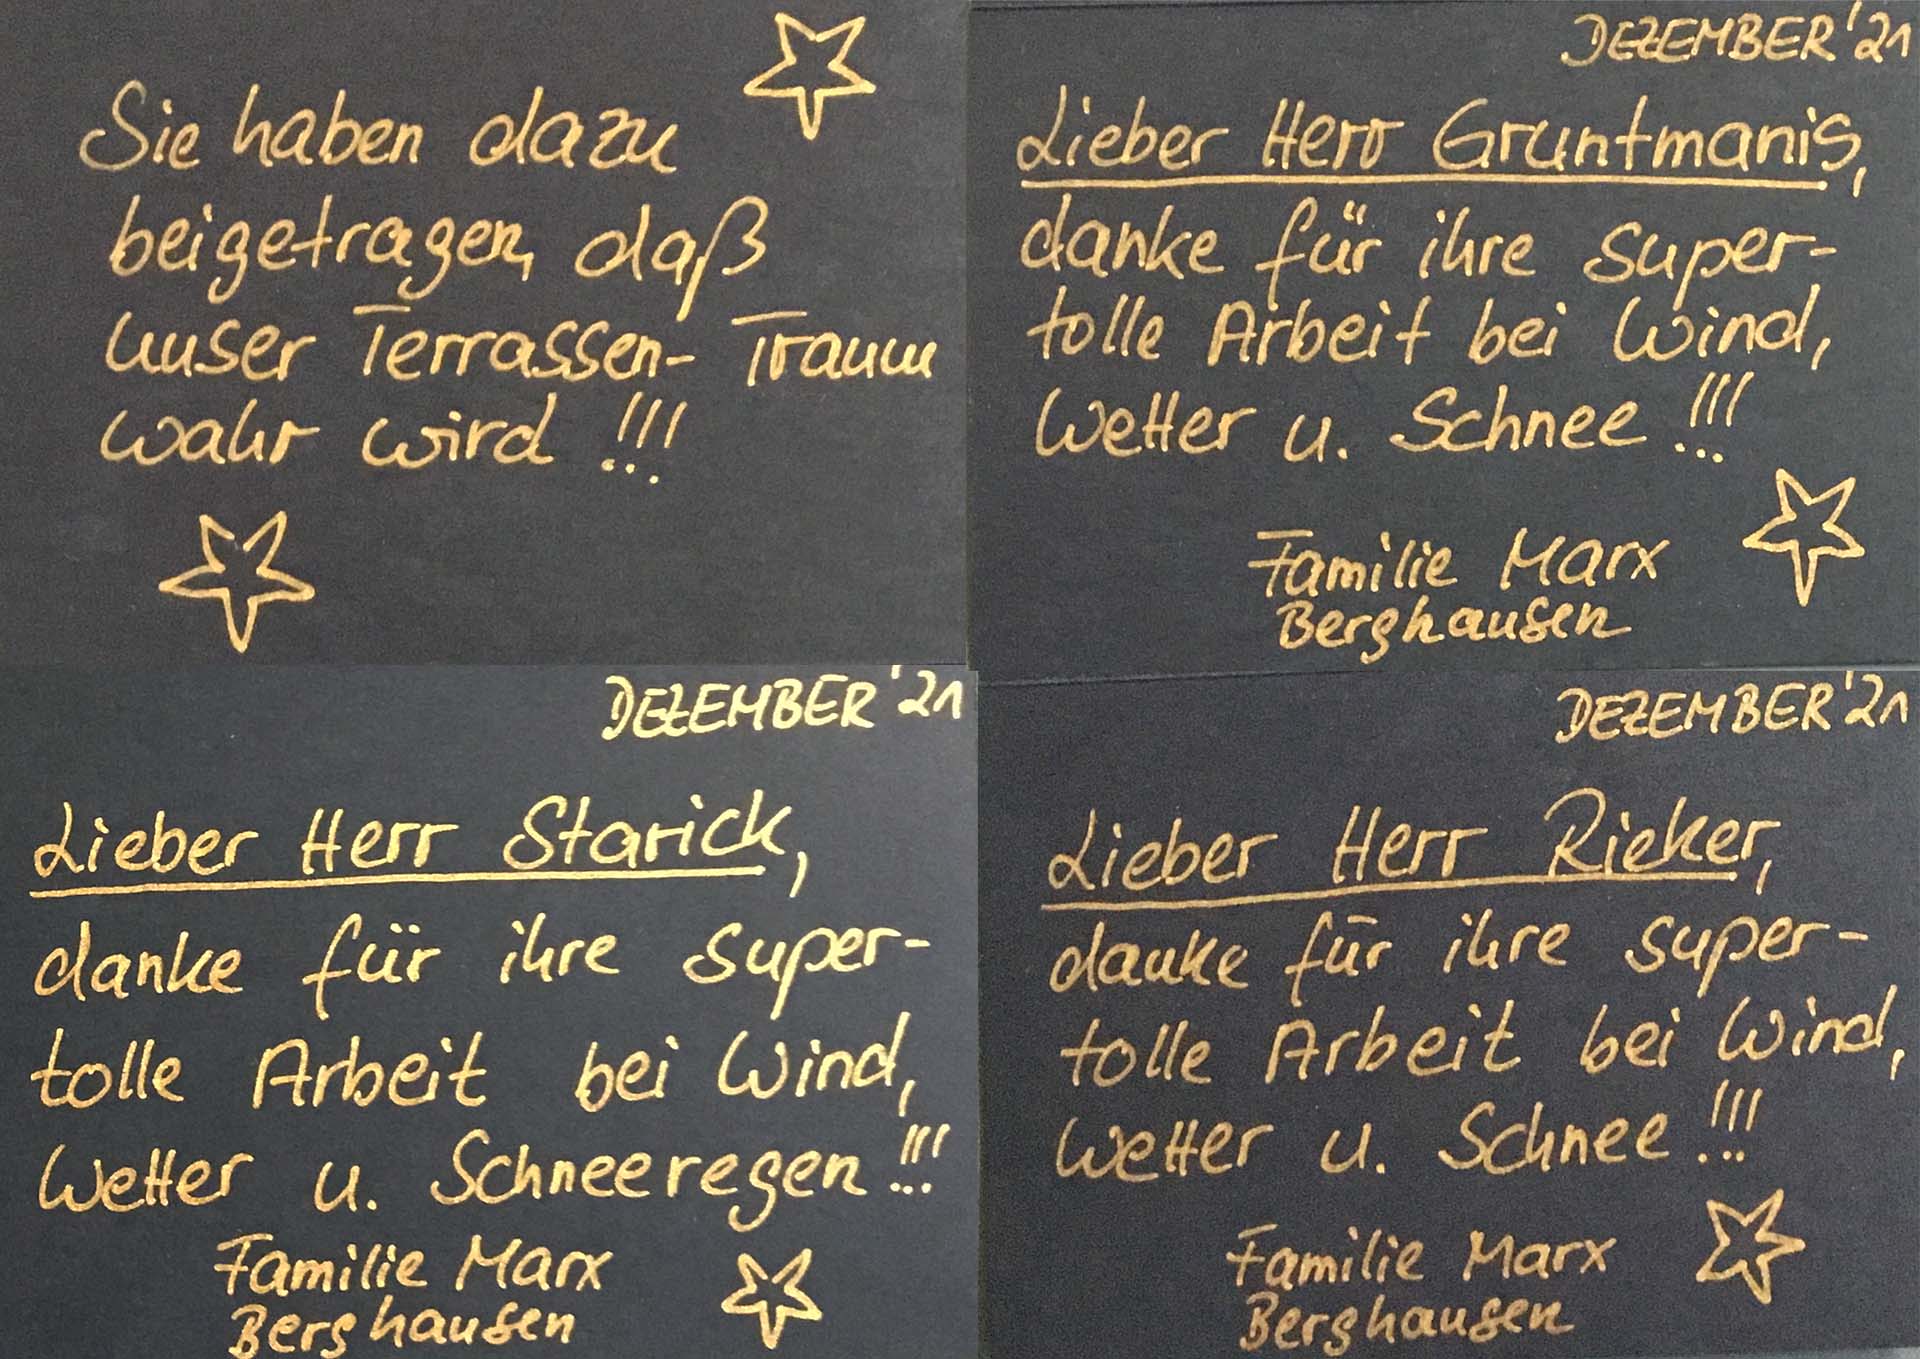 Sie haben dazu
beigetragen, daß
unser Terrassen-Traum
wahr wird !!!
DEZEMBER '21
Lieber Herr Gruntmanis,
danke für ihre super-
tolle Arbeit bei Wind,
Wetter u. Schnee !!!
Familie Marx
Berghausen
DEZEMBER '21
Lieber Herr Starick,
danke für ihre super-
tolle Arbeit bei Wind,
Wetter u. Schneeregen !!!
Familie Marx
Berghausen
DEZEMBER '21
Lieber Herr Rieker,
danke für ihre super-
tolle Arbeit bei Wind,
Wetter u. Schnee !!!
Familie Marx
Berghausen